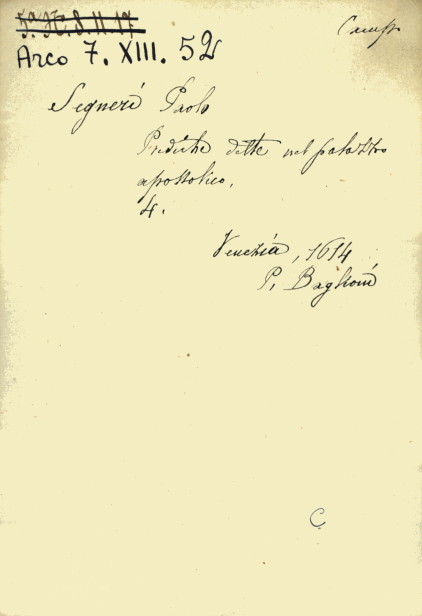 Camp
Arco 7. XIII. 52
Segneri Paolo
Prediche dette nel palazzo
apostolico.
4.
Venezia, 1614
P. Baglioni
C